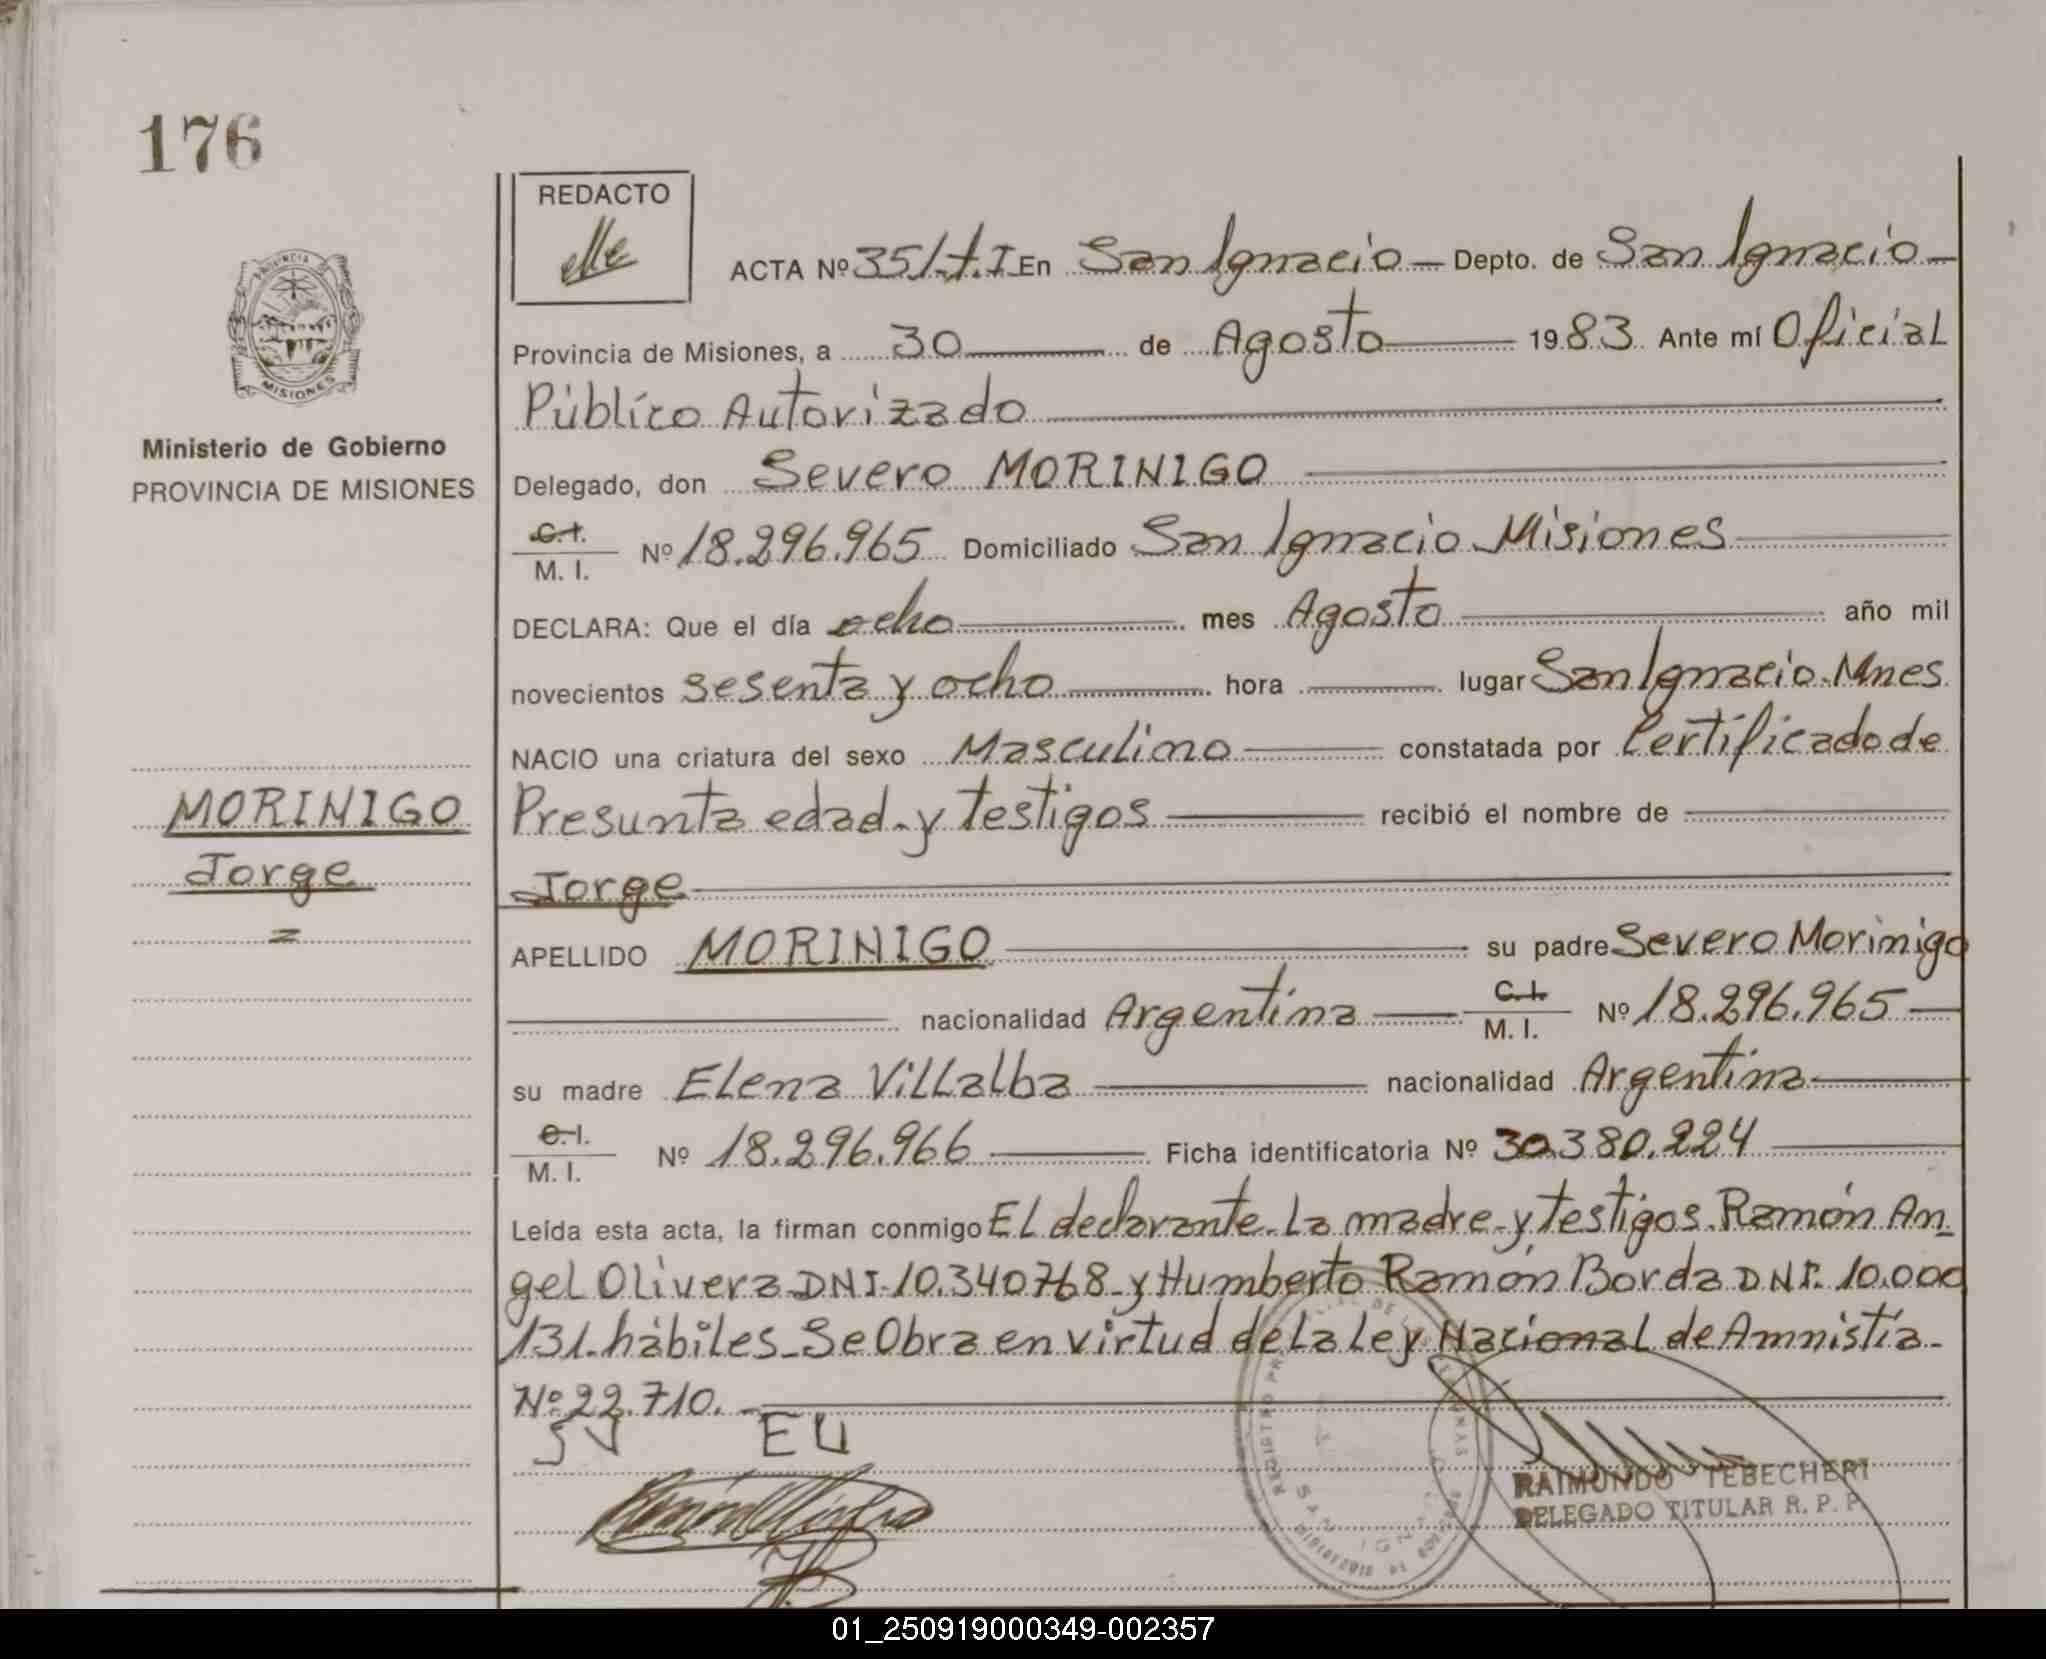 176
REDACTO
ACTA Nº 351-t.I En San Ignacio - Depto. de San Ignacio -
Provincia de Misiones, a 30 de Agosto 1983 Ante mí Oficial
Público Autorizado
PROVINCIA DE
MISIONES
Ministerio de Gobierno
PROVINCIA DE MISIONES
Delegado, don Severo MORINIGO
C.I.
M. I. Nº 18.296.965 Domiciliado San Ignacio Misiones
DECLARA: Que el día ocho mes Agosto año mil
novecientos sesenta y ocho hora lugar San Ignacio-Mnes
NACIO una criatura del sexo Masculino constatada por Certificado de
Presunta edad-y testigos recibió el nombre de
Jorge
MORINIGO
Jorge
=
APELLIDO MORINIGO su padre Severo Morinigo
nacionalidad Argentina C.I.
M. I. Nº 18.296.965
su madre Elena Villalba nacionalidad Argentina
C.I.
M. I. Nº 18.296.966 Ficha identificatoria Nº 30.380.224
Leída esta acta, la firman conmigo El declarante-La madre-y testigos-Ramón An-
gel Olivera-DNI-10.340768-y Humberto Ramón Borda DNI. 10.000
131-hábiles-Se Obra en virtud de la Ley Nacional de Amnistía-
Nº 22.710. -
EU
RAIMUNDO TEBECHERI
DELEGADO TITULAR R. P. P.
01_250919000349-002357